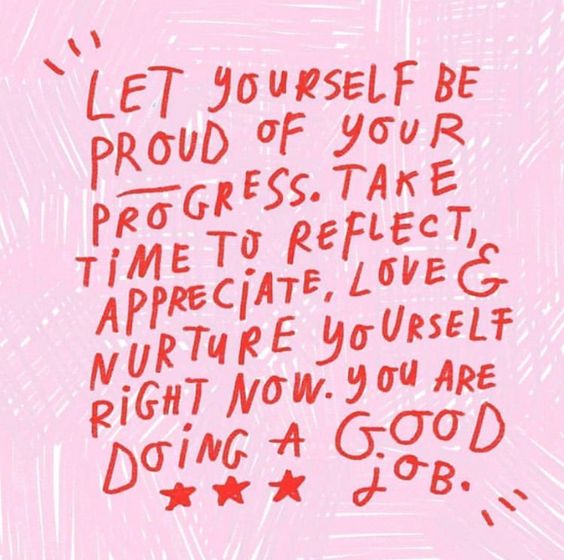 LET YOURSELF BE
PROUD OF YOUR
PROGRESS. TAKE
TIME TO REFLECT,
APPRECIATE, LOVE &
NURTURE YOURSELF
RIGHT NOW. YOU ARE
DOING A GOOD
JOB.